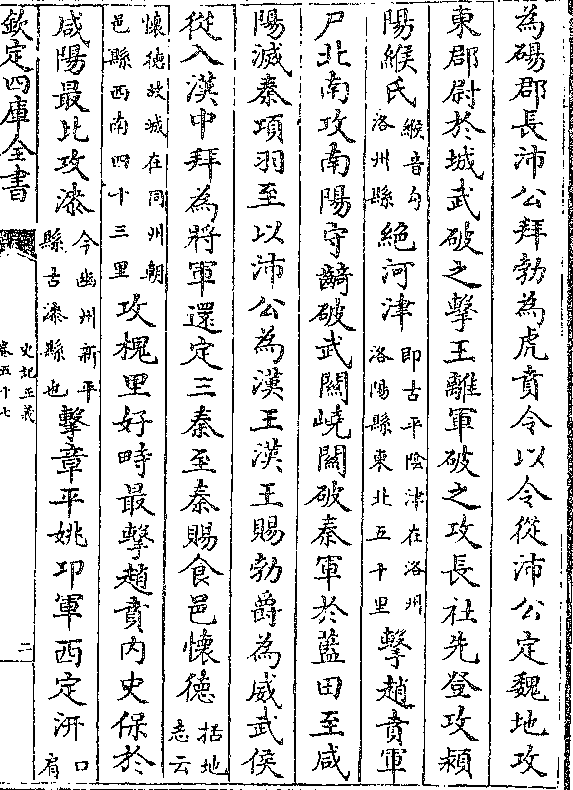 為碭郡長沛公拜勃為虎賁令以令從沛公定魏地攻
東郡尉於城武破之擊王離軍破之攻長社先登攻潁
陽緱氏緱音勾洛州縣絶河津即古平陰津在洛州洛陽縣東北五十里擊趙賁軍
尸北南攻南陽守齮破武關嶢關破秦軍於藍田至咸
陽滅秦項羽至以沛公為漢王漢王賜勃爵為威武侯
從入漢中拜為將軍還定三秦至秦賜食邑懷德括地志云
懷德故城在同州朝邑縣西南四十三里攻槐里好時最擊趙賁内史保於
咸陽最北攻漆今幽州新平縣古漆縣也擊章平姚卬軍西定汧口肩
欽定四庫全書
史記正義
卷五十七
二